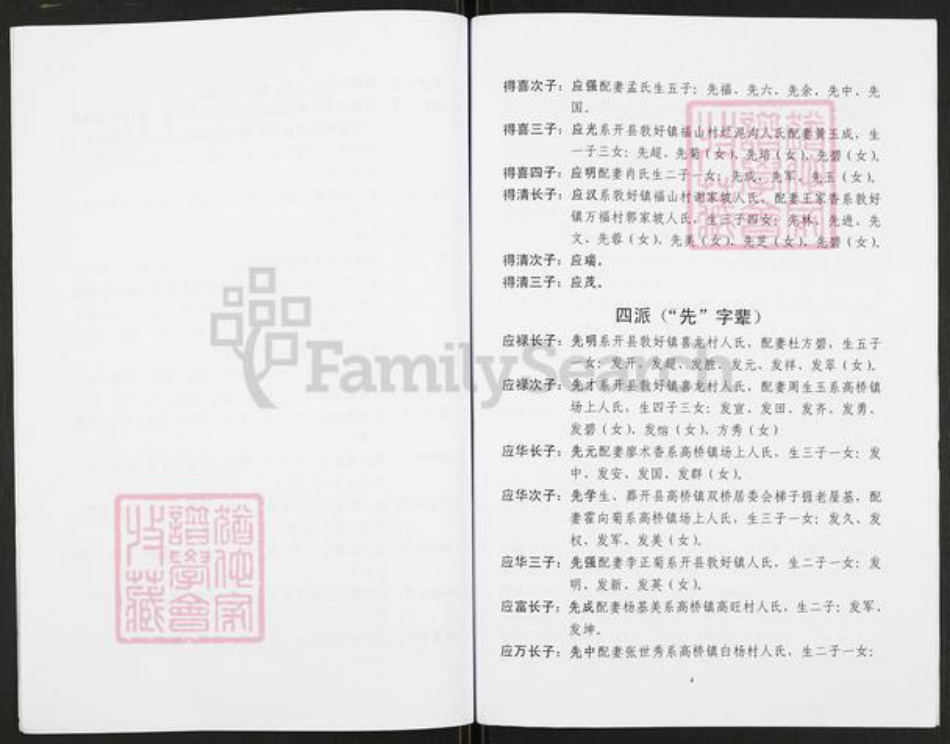 得喜次子：应强配妻孟氏生五子：先福、先六、先余、先中、先
国。
得喜三子：应光系开县敦好镇福山村烂泥沟人氏配妻黄玉成，生
一子三女：先超、先菊（女）、先培（女）、先碧（女）。
得喜四子：应明配妻肖氏生二子一女：先成、先军、先玉（女）。
得清长子：应汉系敦好镇福山村谢家坡人氏，配妻王家香系敦好
镇万福村郭家坡人氏，生三子四女：先林、先进、先
文、先蓉（女）、先美（女）、先芝（女）、先碧（女）。
得清次子：应瑞。
得清三子：应茂。
四派（“先”字辈）
应禄长子：先明系开县敦好镇喜龙村人氏，配妻杜方碧，生五子
一女：发开、发超、发胜、发元、发祥、发翠（女）。
应禄次子：先才系开县敦好镇喜龙村人氏，配妻周生玉系高桥镇
场上人氏，生四子三女：发宣、发田、发齐、发勇、
发碧（女）、发榕（女）、方秀（女）
应华长子：先元配妻廖术香系高桥镇场上人氏，生三子一女：发
中、发安、发国、发群（女）。
应华次子：先学生、葬开县高桥镇双桥居委会梯子碥老屋基，配
妻霍向菊系高桥镇场上人氏，生三子一女：发久、发
权、发军、发美（女）。
应华三子：先强配妻李正菊系开县敦好镇人氏，生二子一女：发
明、发新、发英（女）。
应富长子：先成配妻杨基美系高桥镇高旺村人氏，生二子：发军、
发坤。
应万长子：先中配妻张世秀系高桥镇白杨村人氏，生二子一女：
4
FamilySearch
譜學會
收藏